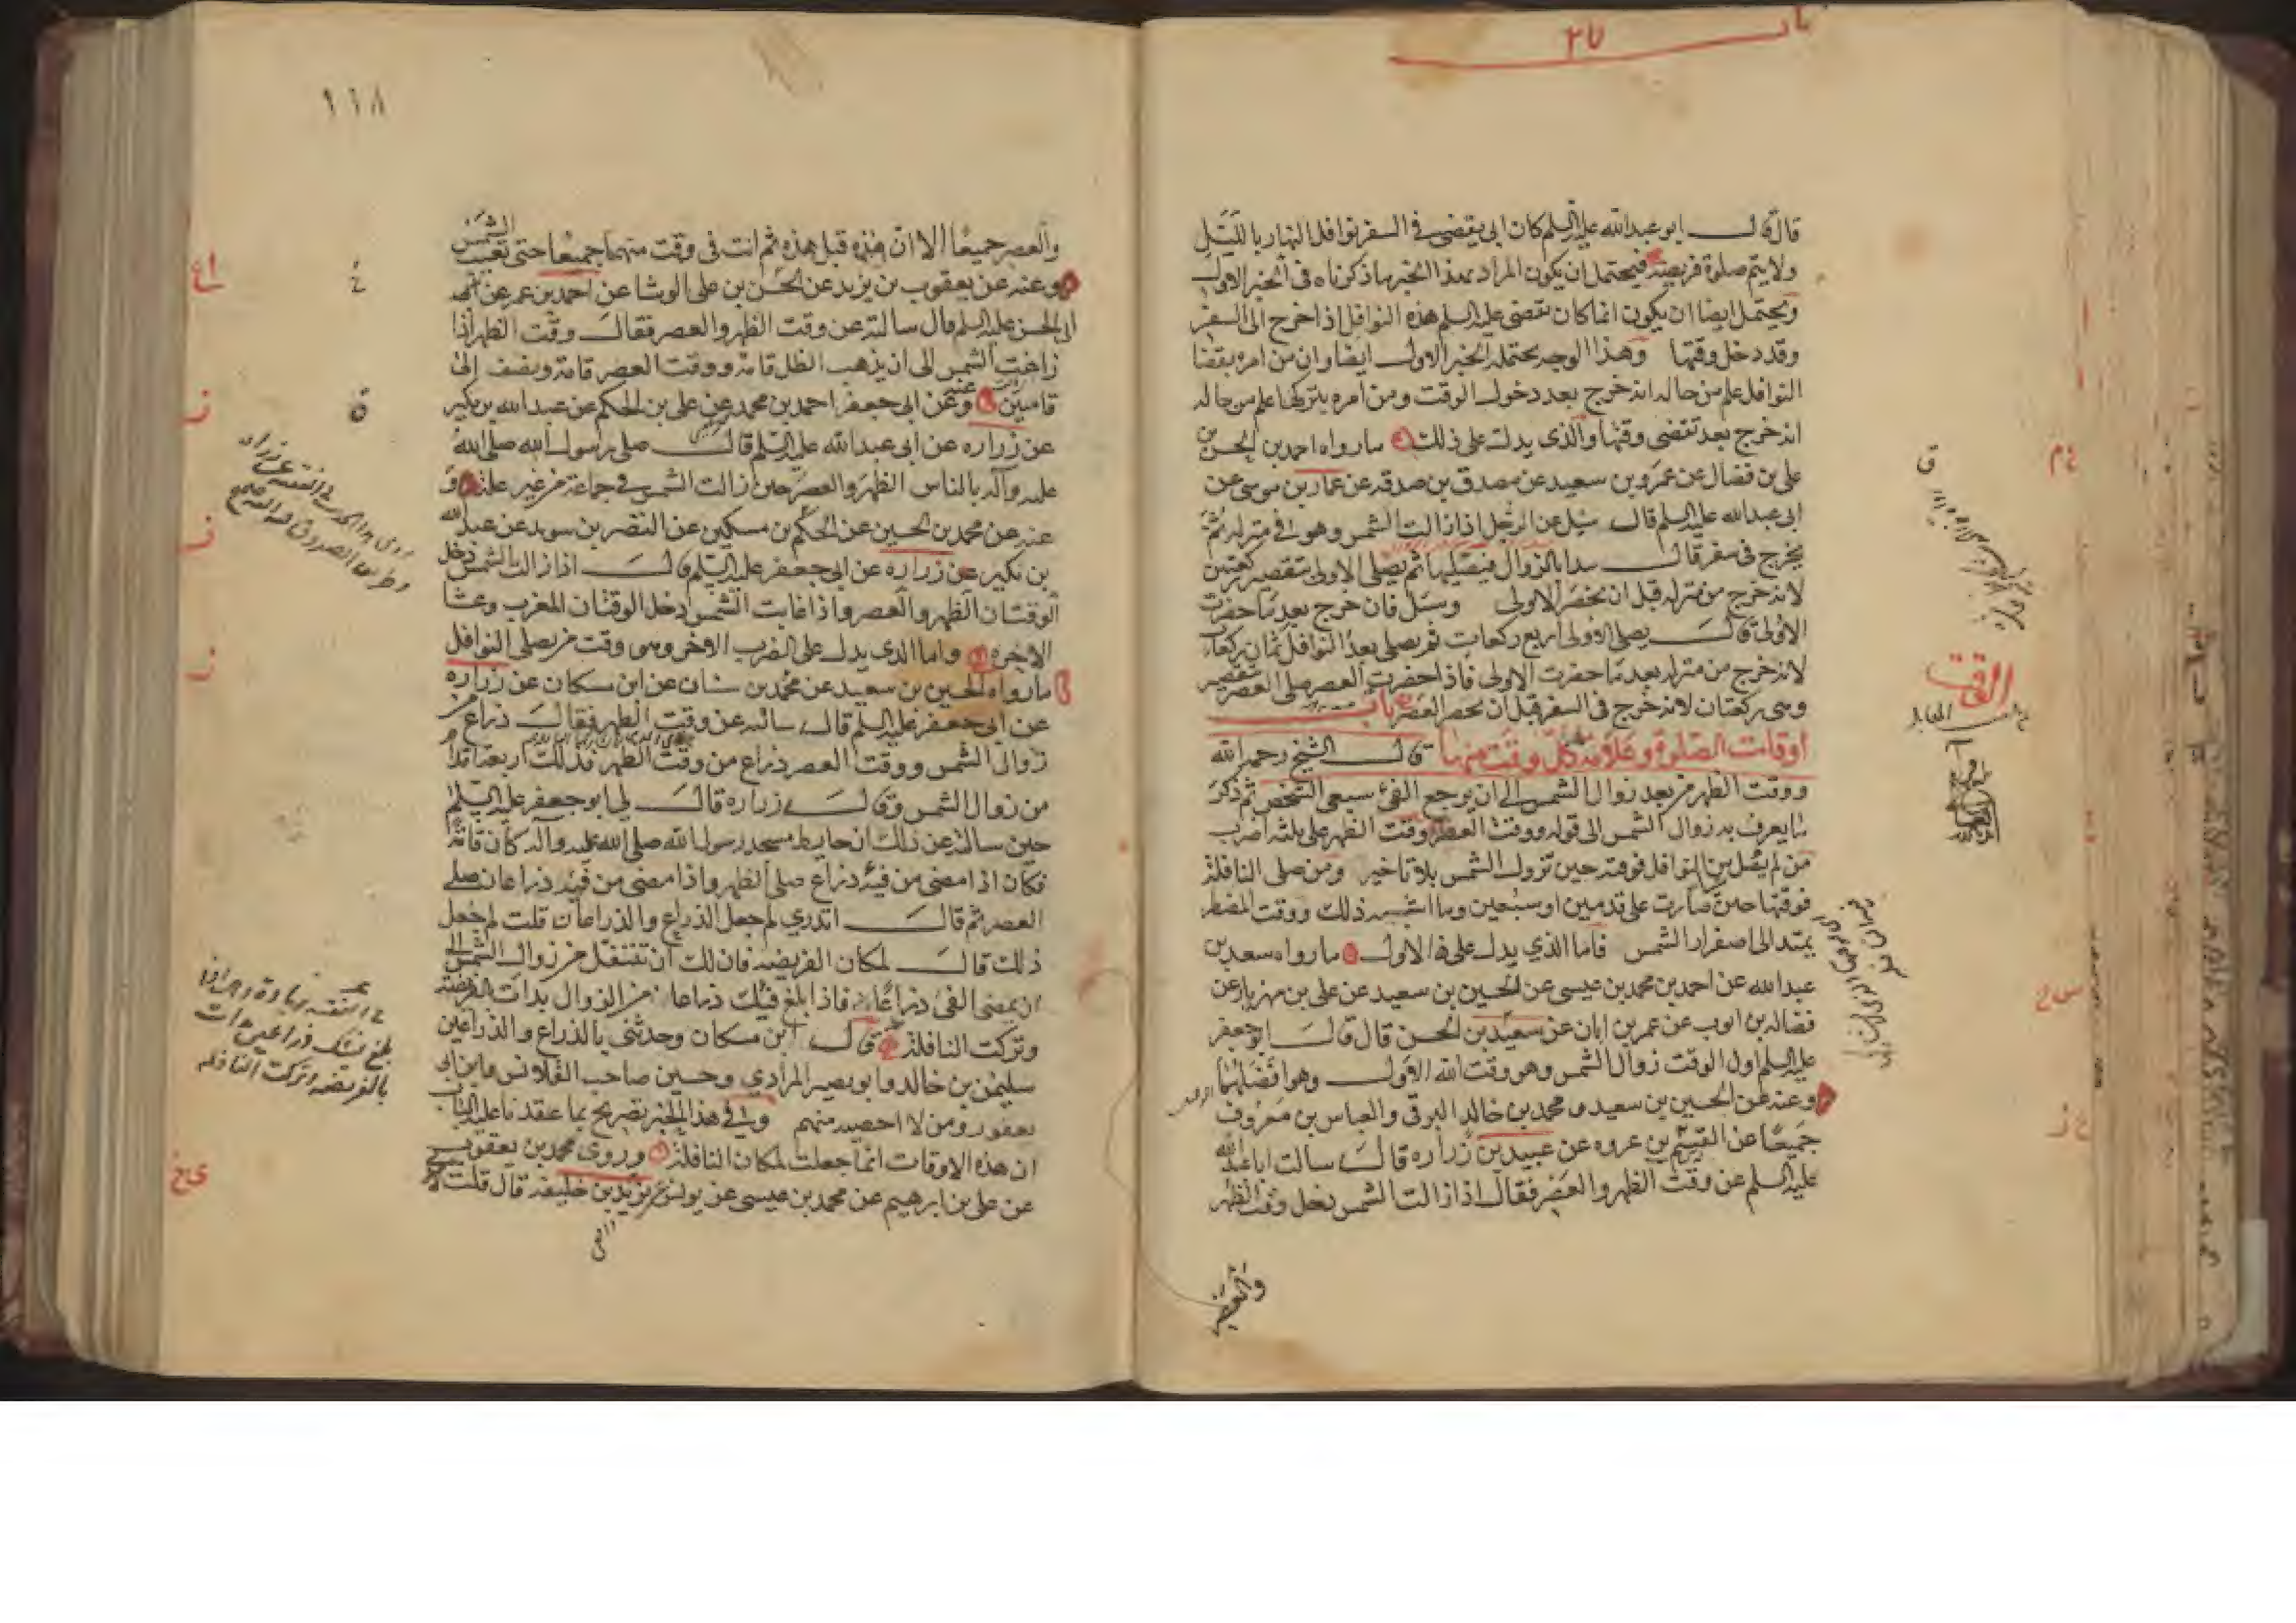 قال قال ابو عبدالله عليه السلم كان ابي يقضى فى السفر نوافل النهار بالليل
ولا يتم صلوة فريضة فيحتمل ان يكون المراد بهذا الخبر ما ذكرناه فى الخبر الاول
ويحتمل ايضا ان يكون انما كان تقضى عليه السلم هذه النوافل اذا خرج الى السفر
وقد دخل وقتها وهذا الوجه يحتمله الخبر الاول ايضا وان من امره بقضا
النوافل علم من حاله انه خرج بعد دخول الوقت ومن امره بتركها علم من حاله
انه خرج بعد تقضى وقتها والذى يدل على ذلك ما رواه احمد بن الحسن بن
على بن فضال عن عمرو بن سعيد عن مصدق بن صدقه عن عمار بن موسى عن
ابى عبدالله عليه السلم قال سئل عن الرجل اذا زالت الشمس وهو فى منزله ثم
يخرج فى سفر قال يبدا بالزوال فيصليها ثم يصلى الاولى بتقصير ركعتين
لانه خرج من منزله قبل ان تحضر الاولى وسئل فان خرج بعد ما حضرت
الاولى قال يصلى الاولى اربع ركعات ثم يصلى بعد النوافل ثمان ركعات
لانه خرج من منزله بعد ما حضرت الاولى فاذا حضرت العصر صلى العصر بتقصير
وهى ركعتان لانه خرج فى السفر قبل ان تحضر العصر باب
اوقات الصلوة وعلامة كل وقت منها قال الشيخ رحمه الله
ووقت الظهر من بعد زوال الشمس الى ان يرجع الفئ سبعى الشخص ثم ذكر
ما يعرف به زوال الشمس الى قوله ووقت العصر وقت الظهر على ثلثه اضرب
من لم يصل من النوافل فوقته حين تزول الشمس بلا تاخير ومن صلى النافلة
فوقتها حين صارت على قدمين او سبعين وما اشبه ذلك ووقت المضطر
يمتد الى اصفرار الشمس فاما الذي يدل على الاول ما رواه سعد بن
عبدالله عن احمد بن محمد بن عيسى عن الحسين بن سعيد عن على بن مهزيار عن
فضاله بن ايوب عن عمر بن ابان عن سعيد بن الحسن قال قال ابو جعفر
عليه السلم اول الوقت زوال الشمس وهو وقت الله الاول وهو افضلهما
وعنه عن الحسين بن سعيد و محمد بن خالد البرقى والعباس بن معروف
جميعا عن القسم بن عروه عن عبيد بن زراره قال سالت ابا عبدالله
عليه السلم عن وقت الظهر والعصر فقال اذا زالت الشمس دخل وقت الظهر
والعصر
١١٨
والعصر جميعا الا ان هذه قبل هذه ثم انت فى وقت منهما جميعا حتى تغيب الشمس
وعنه عن يعقوب بن يزيد عن الحسن بن على الوشا عن احمد بن عمر عن
ابى الحسن عليه السلم قال سالته عن وقت الظهر والعصر فقال وقت الظهر اذا
زاغت الشمس الى ان يذهب الظل قامة ووقت العصر قامة ونصف الى
قامتين وعنه عن ابى جعفر احمد بن محمد عن على بن الحكم عن عبدالله بن بكير
عن زراره عن ابى عبدالله عليه السلم قال صلى رسول الله صلى الله
عليه وآله بالناس الظهر والعصر حين زالت الشمس فى جماعة من غير علة و
عنه عن محمد بن الحسين عن الحكم بن مسكين عن النضر بن سويد عن عبدالله
بن بكير عن زراره عن ابى جعفر عليه السلم قال اذا زالت الشمس دخل
الوقتان الظهر والعصر واذا غابت الشمس دخل الوقتان المغرب وعشا
الاخره واما الذى يدل على الضرب الاخر وهى وقت من يصلى النوافل
ما رواه الحسين بن سعيد عن محمد بن سنان عن ابن مسكان عن زراره
عن ابى جعفر عليه السلم قال سالته عن وقت الظهر فقال ذراع من
زوال الشمس ووقت العصر ذراع من وقت الظهر فذلك اربعة اقدام
من زوال الشمس وقال زراره قال لى ابو جعفر عليه السلم
حين سالته عن ذلك ان حايط مسجد رسول الله صلى الله عليه واله كان قامة
فكان اذا مضى من فيئه ذراع صلى الظهر واذا مضى من فيئه ذراعان صلى
العصر ثم قال اتدري لم جعل الذراع والذراعان قلت لم جعل
ذلك قال لمكان الفريضة فان لك ان تتنفل من زوال الشمس الى
ان يمضى الفئ ذراعا فاذا بلغ فيئك ذراعا من الزوال بدات بالفريضة
وتركت النافلة قال ابن مسكان وحدثنى بالذراع والذراعين
سليمن بن خالد وابو بصير المرادي وحسين صاحب القلانس وابن ابى
يعفور ومن لا احصيه منهم وفى هذا الخبر تصريح بما عقدنا عليه الباب
ان هذه الاوقات انما جعلت لمكان النافلة وروى محمد بن يعقوب
عن على بن ابرهيم عن محمد بن عيسى عن يونس عن يزيد بن خليفه قال قلت
بلغ فيئك ذراعين بدات
بالفريضه وتركت النافله